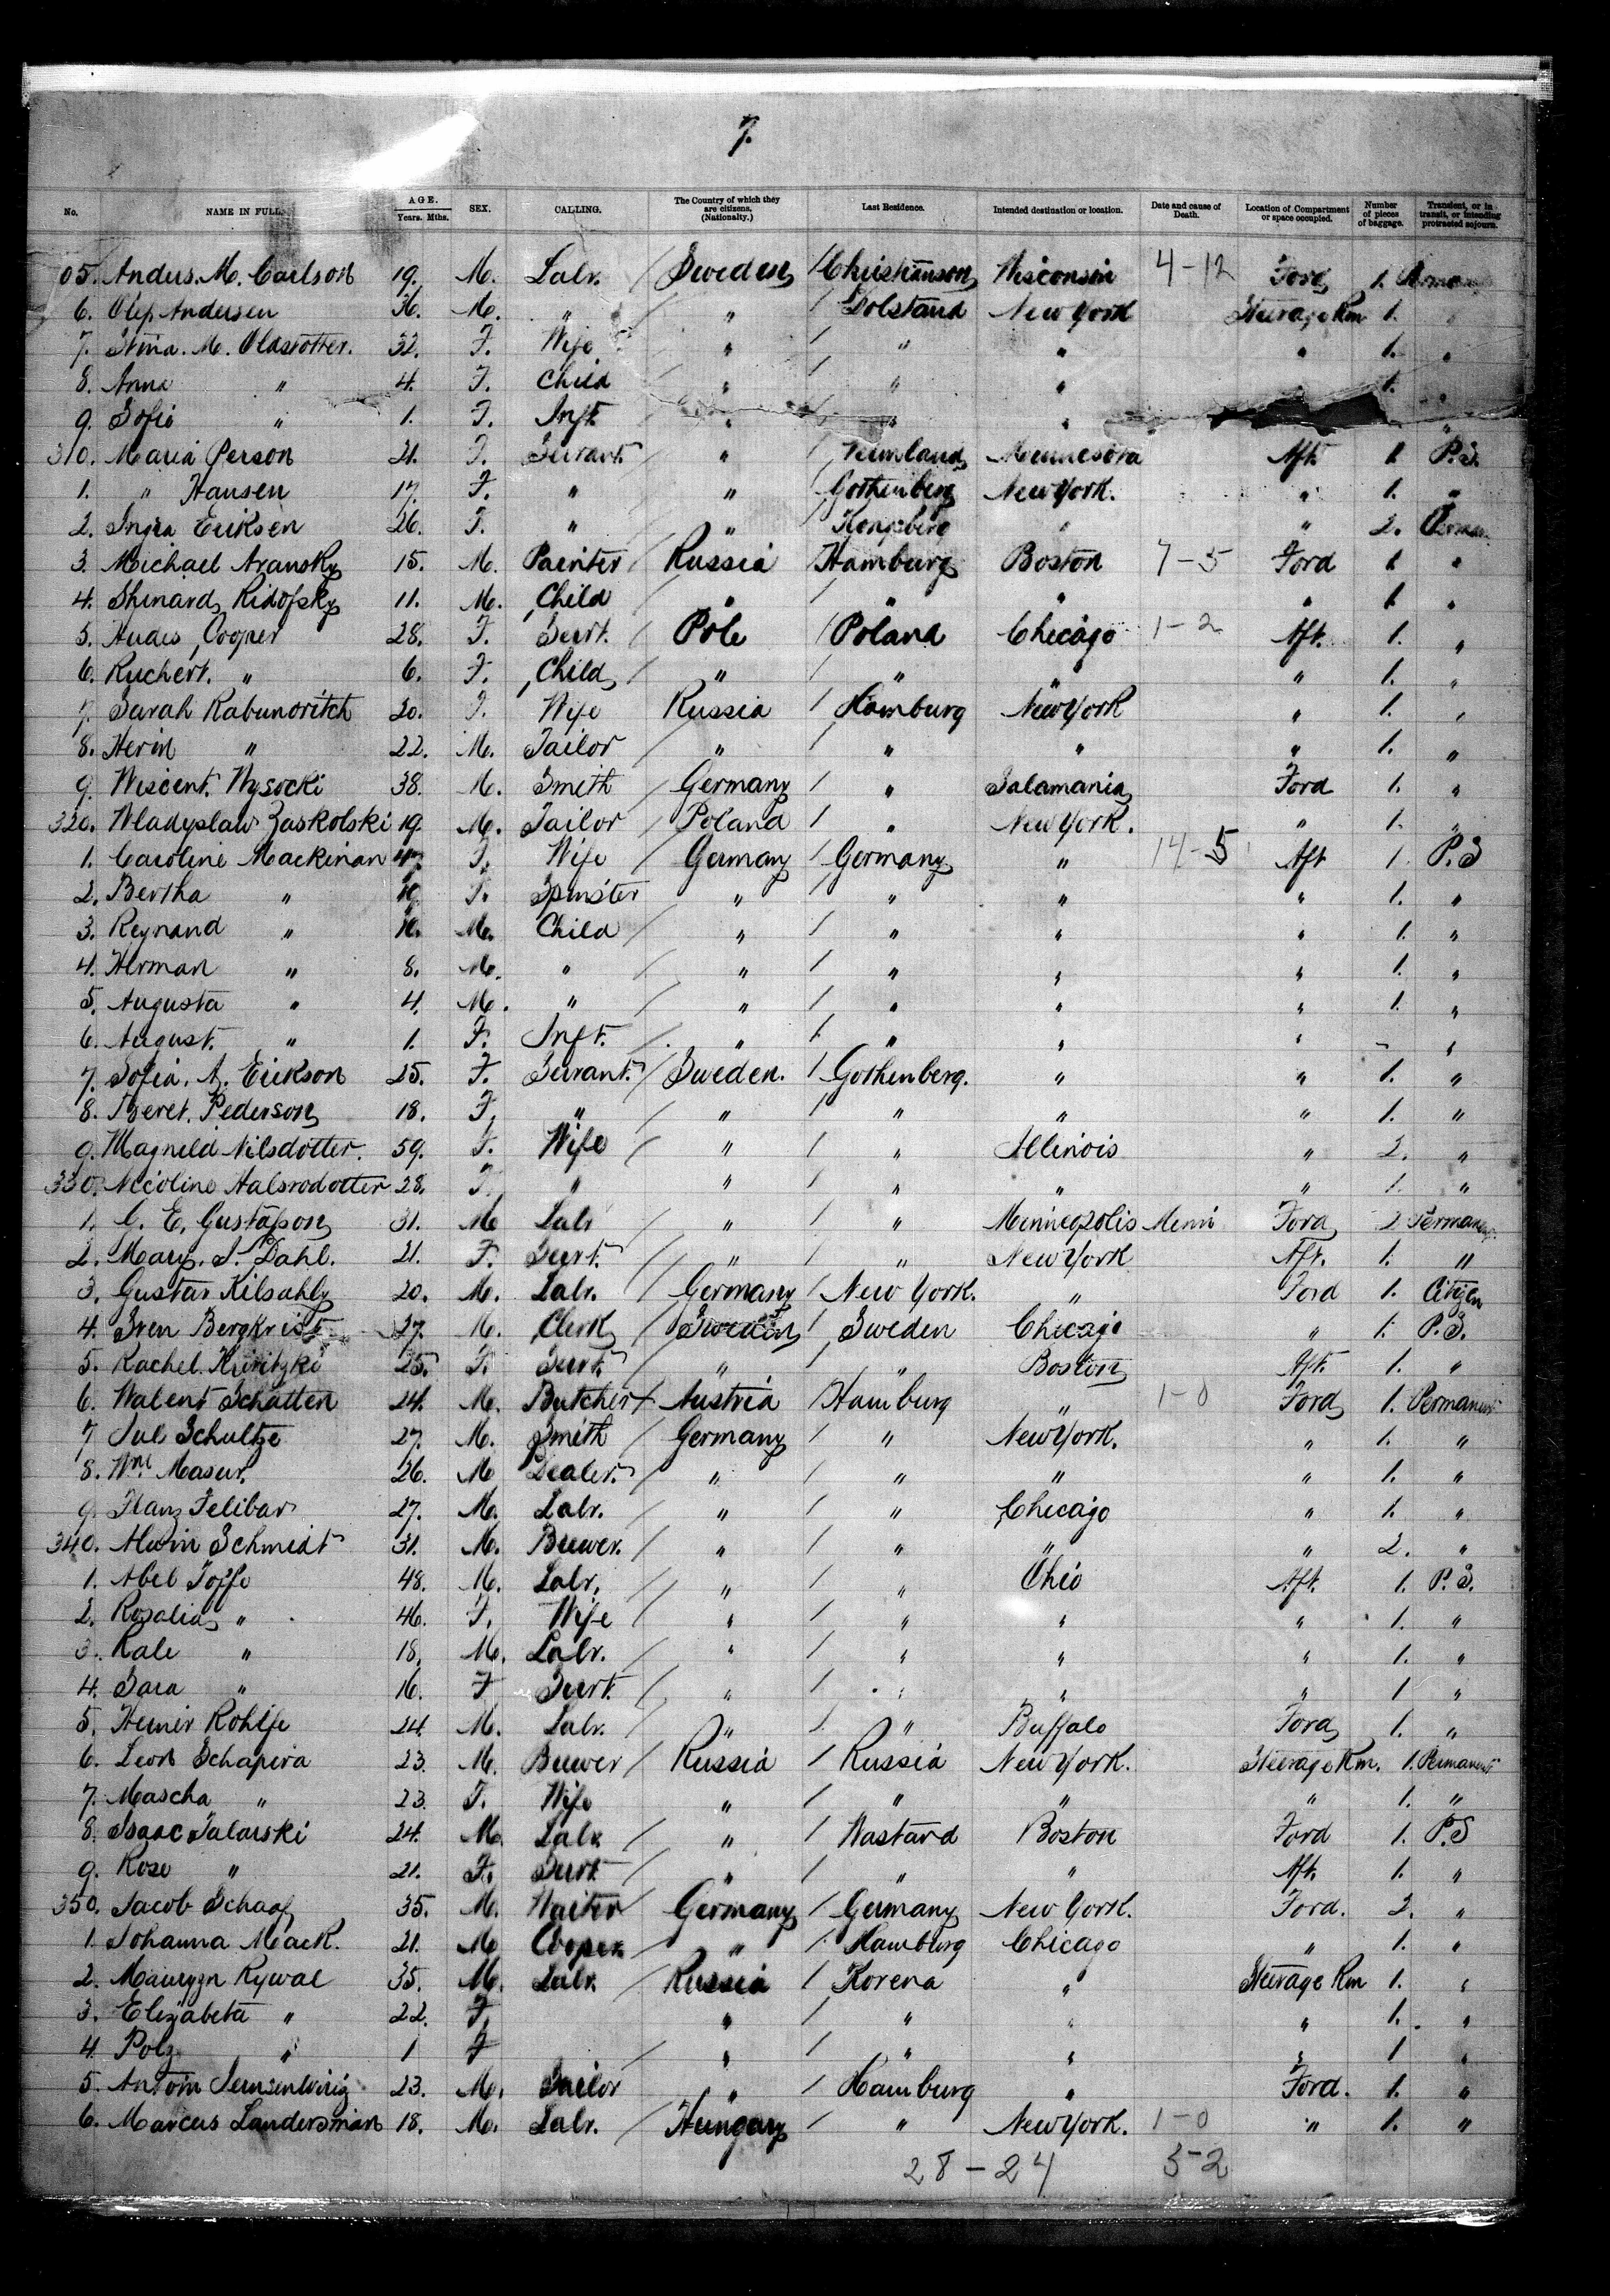 7.
No. NAME IN FULL. AGE. Years. Mths. SEX. CALLING. The Country of which they are citizens. (Nationalty.) Last Residence. Intended destination or location. Date and cause of Death. Location of Compartment or space occupied. Number of pieces of baggage. Transient, or in transit, or intending protracted sojourn.
05. Andus. M. Carlson 19. M. Labr. / Sweden / Christianson Wisconsin 4-12 Ford 1.
6. Olef Andersen 36. M. " " / Dolstand New York Steerage Rm 1.
7. Stina. M. Olastotter. 32. F. Wife " / " " " 1. "
8. Anna " 4. F. Child / " / " " 1. "
9. Sofie " 1. F. Inft. " " " "
310. Maria Person 21. F. Servant. " / Vermland Minnesota Aft. 1 P.S.
1. " Hansen 17. F. " " / Gothenberg New York. " 1. "
2. Ingra Eriksen 26. F. " " / Kongsberg " " 2.
3. Michael Aransky 15. M. Painter / Russia / Hamburg Boston 7-5 Ford 1 "
4. Shinard Ridofsky 11. M. Child / " / " " " 1 "
5. Hudes Cooper 28. F. Servt. / Pole / Poland Chicago 1-2 Aft. 1. "
6. Ruchert. " 6. F. Child / " / " " " 1. "
7. Sarah Rabunoritch 20. F. Wife Russia / Hamburg New York " 1. "
8. Herin " 22. M. Tailor / " / " " " 1. "
9. Wiscent. Wysocki 38. M. Smith / Germany / " Salamania Ford 1. "
320. Wladyslaw Zaskolski 19. M. Tailor / Poland / " New York. " 1. "
1. Caroline Mackinan 47. F. Wife / Germany / Germany " 14-5 Aft 1. P.S
2. Bertha " 19. F. Spinster " / " " " 1. "
3. Reynand " 10. M. Child / " / " " " 1. "
4. Herman " 8. M. " / " / " " " 1. "
5. Augusta " 4. M. " / " / " " " 1. "
6. August. " 1. F. Inft. / " / " " " - "
7. Sofia. A. Erikson 25. F. Servant. / Sweden. / Gothenberg. " " 1. "
8. Beret. Pederson 18. F. " / " / " " " 1. "
9. Magneld Nilsdotter. 59. F. Wife / " / " Illinois " 2. "
330. Nicoline Halsrodotter 28. F. " / " / " " " 1. "
1. G. E. Gustafson 31. M Labr / " / " Minneapolis Minn Ford 2 Permanent
2. Mary. S. Dahl. 21. F. Servt. / " / " New York Aft. 1. "
3. Gustav Kilsahly 20. M. Labr. / Germany / New York. " Ford 1. Citizen
4. Sven Bergkrist 37. M. Clerk / Sweden / Sweden Chicago " 1. P.S.
5. Rachel. Kuritzki 25. F. Servt. / " / " Boston Aft. 1. "
6. Walent Schatten 24. M. Butcher / Austria / Hamburg " 1-0 Ford 1. Permanent
7 Jul Schultze 27. M. Smith / Germany / " New York. " 1. "
8. Wm. Masur. 26. M Dealer. / " / " " " 1. "
9. Franz Felibar 27. M. Labr. / " / " Chicago " 1. "
340. Alwin Schmidt 31. M. Brewer. / " / " " " 2. "
1. Abel Joffe 48. M. Labr. / " / " Ohio Aft. 1. P.S.
2. Rosalia " 46. F. Wife / " / " " " 1. "
3. Kale " 18. M. Labr. / " / " " " 1. "
4. Sara " 16. F Servt. / " / " " " 1 "
5. Heinir Rohlfe 24. M. Labr. / " / " Buffalo Ford 1. "
6. Leon Schapira 23. M. Brewer / Russia / Russia New York. Steerage Rm. 1. Permanent
7. Mascha " 23. F. Wife / " / " " " 1. "
8. Isaac Salarski 24. M. Labr. / " / Wastard Boston Ford 1. P.S
9. Rose " 21. F. Servt. / " / " " Aft. 1. "
350. Jacob Schaaf 35. M. Waiter / Germany / Germany New York. Ford. 2. "
1. Johanna Mack. 21. M Cooper. " / Hamburg Chicago " 1. "
2. Mauryzn Rywal 35. M. Labr. / Russia / Korena " Steerage Rm 1. "
3. Elizabeta " 22. F. " / " " " 1. "
4. Polz " 1 F / " / " " " 1 "
5. Antoin 23. M. Tailor / " / Hamburg " Ford. 1. "
6. Marcus Landersman 18. M. Labr. / Hungary / " New York. 1-0 " 1. "
28-24 32